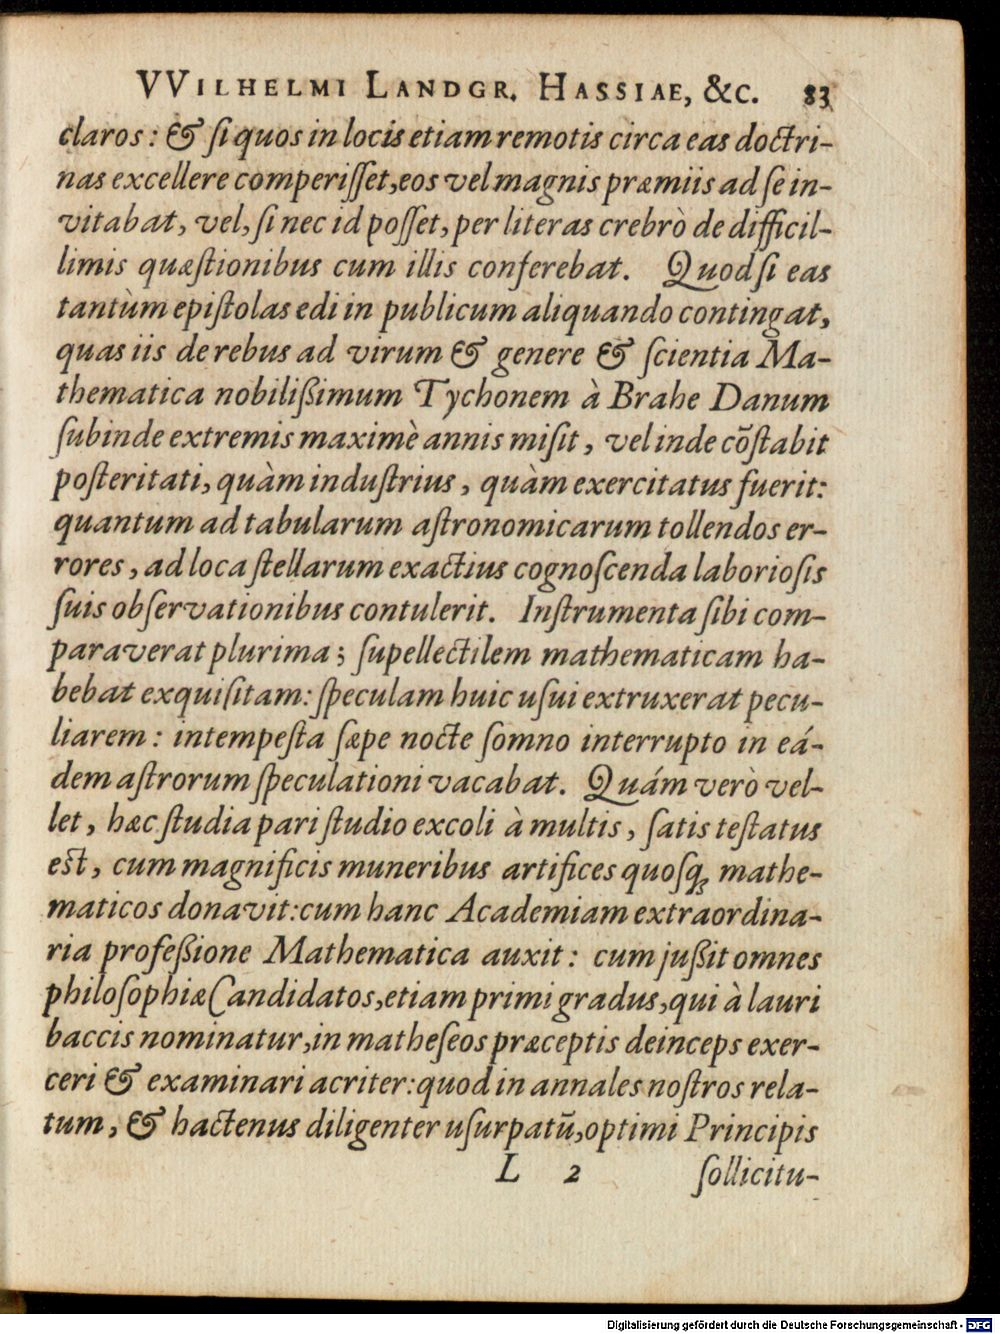 VVILHELMI LANDGR. HASSIAE, &c. 83
claros: & ſi quos in locis etiam remotis circa eas doctri-
nas excellere comperiſſet, eos vel magnis præmiis ad ſe in-
vitabat, vel, ſi nec id poſſet, per literas crebrò de difficil-
limis quæſtionibus cum illis conferebat. Quodſi eas
tantùm epiſtolas edi in publicum aliquando contingat,
quas iis de rebus ad virum & genere & ſcientia Ma-
thematica nobilißimum Tychonem à Brahe Danum
ſubinde extremis maximè annis miſit, vel inde cõſtabit
poſteritati, quàm induſtrius, quàm exercitatus fuerit:
quantum ad tabularum aſtronomicarum tollendos er-
rores, ad loca ſtellarum exactius cognoſcenda laborioſis
ſuis obſervationibus contulerit. Inſtrumenta ſibi com-
paraverat plurima; ſupellectilem mathematicam ha-
bebat exquiſitam: ſpeculam huic uſui extruxerat pecu-
liarem: intempeſta ſæpe nocte ſomno interrupto in eá-
dem aſtrorum ſpeculationi vacabat. Quám verò vel-
let, hæc ſtudia pari ſtudio excoli à multis, ſatis teſtatus
eſt, cum magnificis muneribus artifices quoſq; mathe-
maticos donavit: cum hanc Academiam extraordina-
ria profeßione Mathematica auxit: cum jußit omnes
philoſophiæ Candidatos, etiam primi gradus, qui à lauri
baccis nominatur, in matheſeos præceptis deinceps exer-
ceri & examinari acriter: quod in annales noſtros rela-
tum, & hactenus diligenter uſurpatũ, optimi Principis
L 2 ſollicitu-
Digitalisierung gefördert durch die Deutsche Forschungsgemeinschaft - DFG